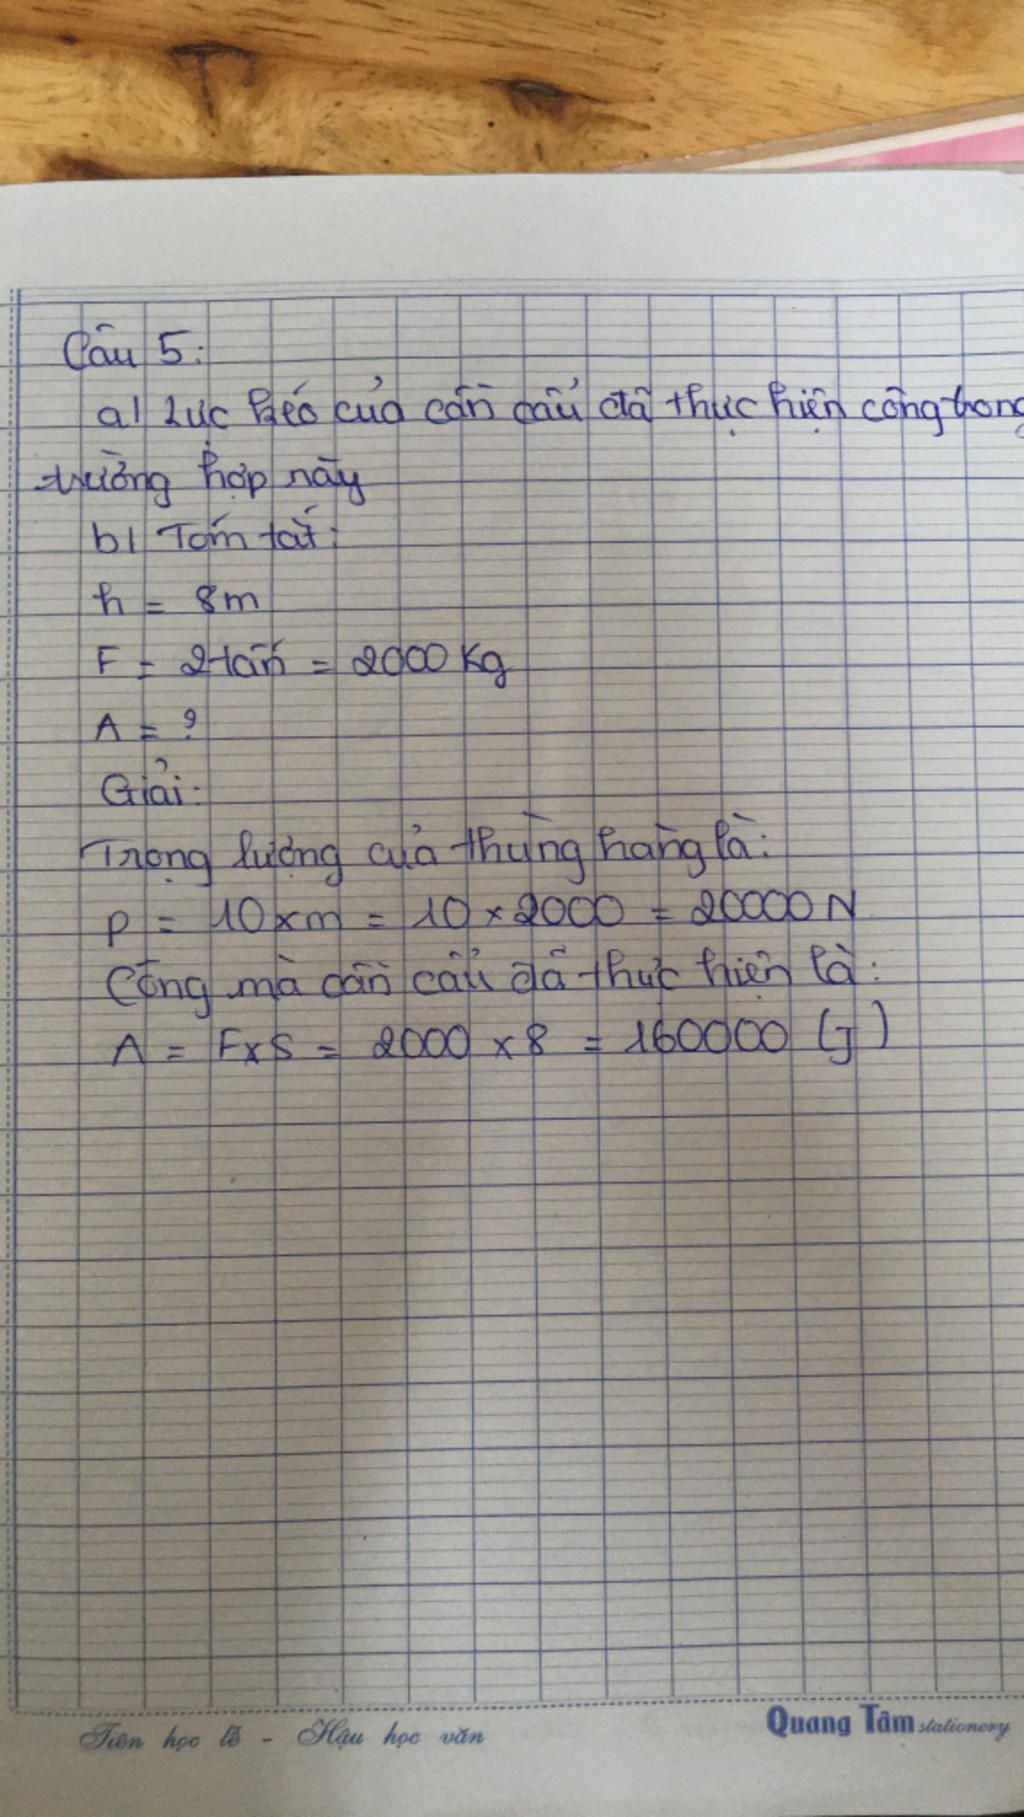 Câu 5:
a) Lực kéo của cần cẩu đã thực hiện công trong
trường hợp này
b) Tóm tắt:
h = 8m
F = 2 tấn = 2000 Kg
A = ?
Giải:
Trọng lượng của thùng hàng là:
P = 10 x m = 10 x 2000 = 20000 N
Công mà cần cẩu đã thực hiện là:
A = F x S = 2000 x 8 = 160000 (J)
Tiên học lễ - Hậu học văn
Quang Tâm stationery